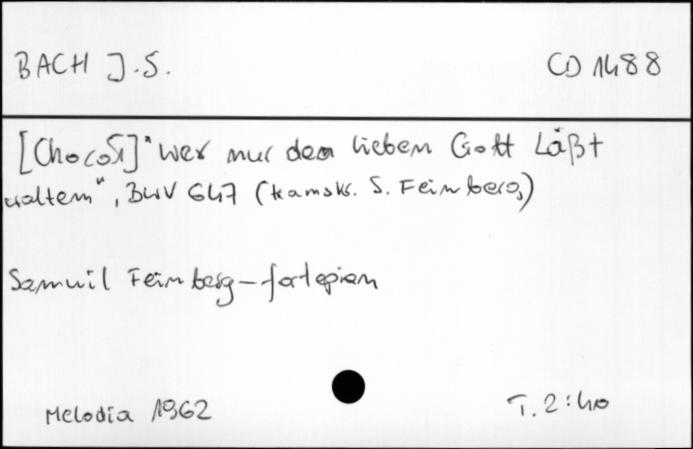 BACH J.S. CD 1488
[Chorał] "Wer nur den lieben Gott läßt
walten", BWV 647 (transkr. S. Feinberg)
Samuil Feinberg - fortepian
Melodia 1962 T. 2:40